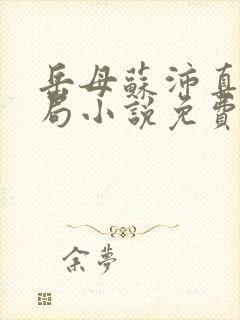 岳母蘇沛真
局小說免費
余夢